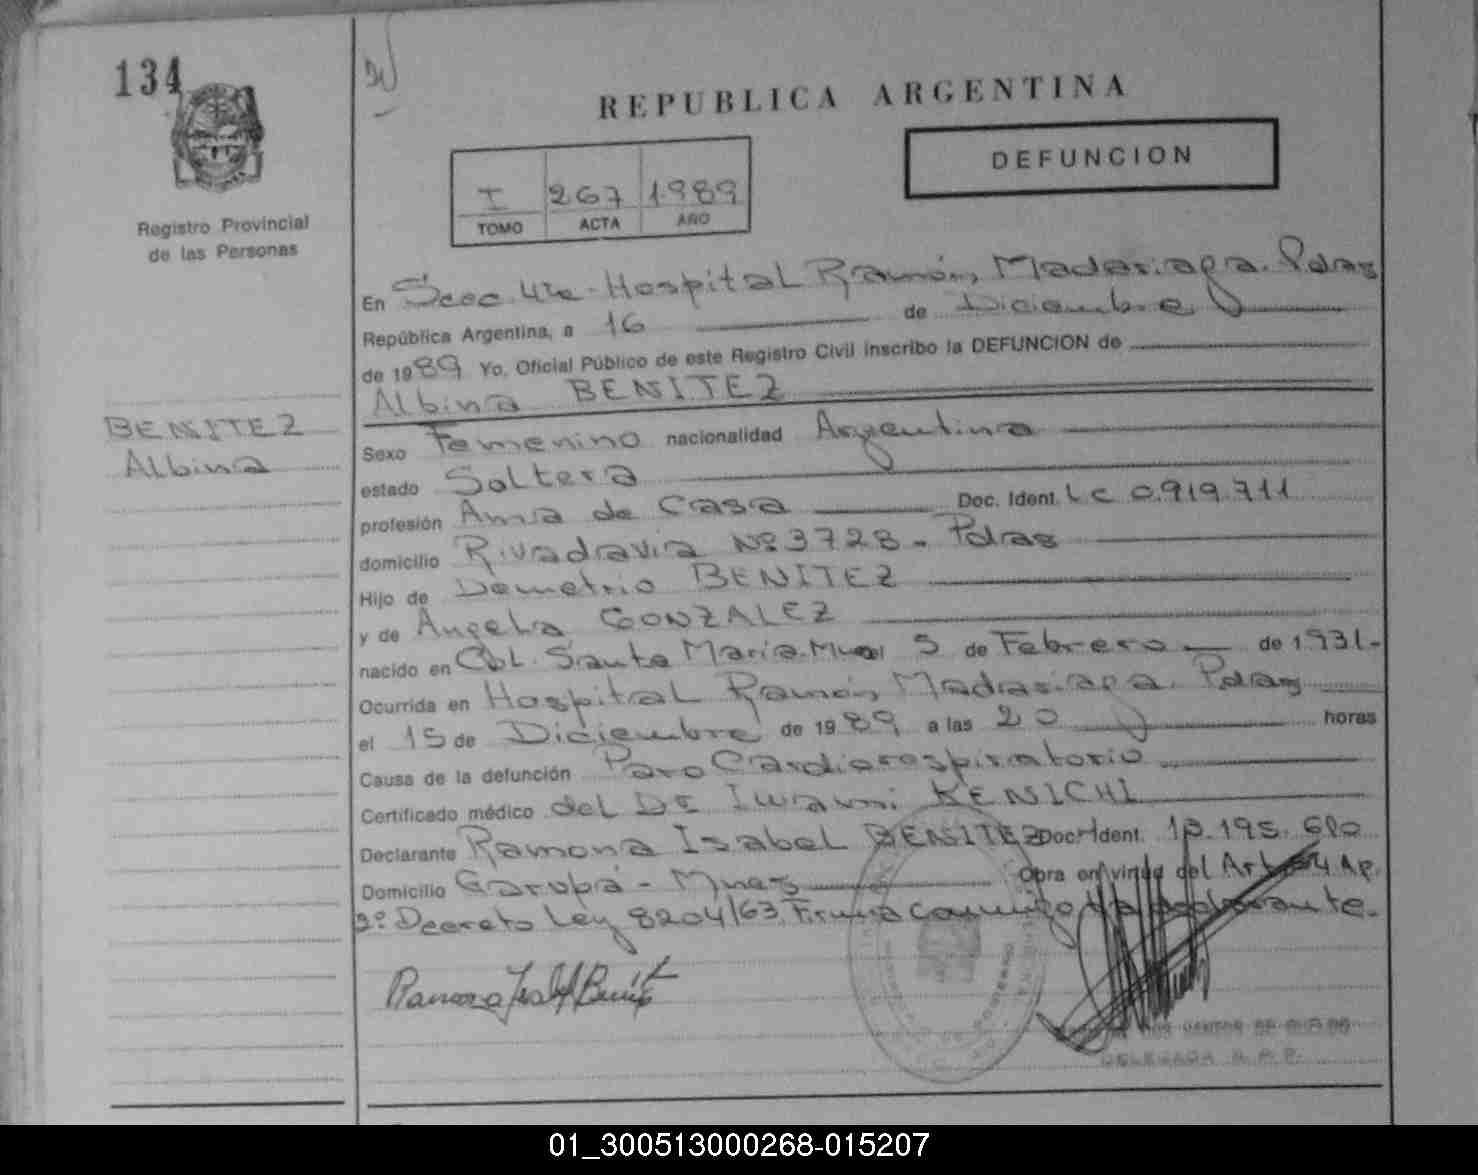 134
REPUBLICA ARGENTINA
DEFUNCION
I 267 1989
TOMO ACTA AÑO
Registro Provincial
de las Personas
En Secc. 4ta. Hospital Ramón Madariaga. Pdas
República Argentina, a 16 de Diciembre
de 1989 Yo, Oficial Público de este Registro Civil inscribo la DEFUNCION de
Albina BENITEZ
BENITEZ
Albina
Sexo Femenino nacionalidad Argentina
estado Soltera
profesión Ama de Casa Doc. Ident. L C 0.919.711
domicilio Rivadavia Nº 3728 - Pdas
Hijo de Demetrio BENITEZ
y de Angela GONZALEZ
nacido en Col. Santa María. 5 de Febrero de 1.931-
Ocurrida en Hospital Ramón Madariaga. Pdas
el 15 de Diciembre de 1989 a las 20 horas
Causa de la defunción Paro Cardiorespiratorio
Certificado médico del Dr Iwami KENICHI
Declarante Ramona Isabel BENITEZ Doc. Ident.
Domicilio Garupá - Mnes Obra en virtud del Art. Ap.
2º Decreto Ley 8204/63. Firma conmigo la declarante.
Ramona Isabel Benitez
DELEGADA R. P. P.
01_300513000268-015207